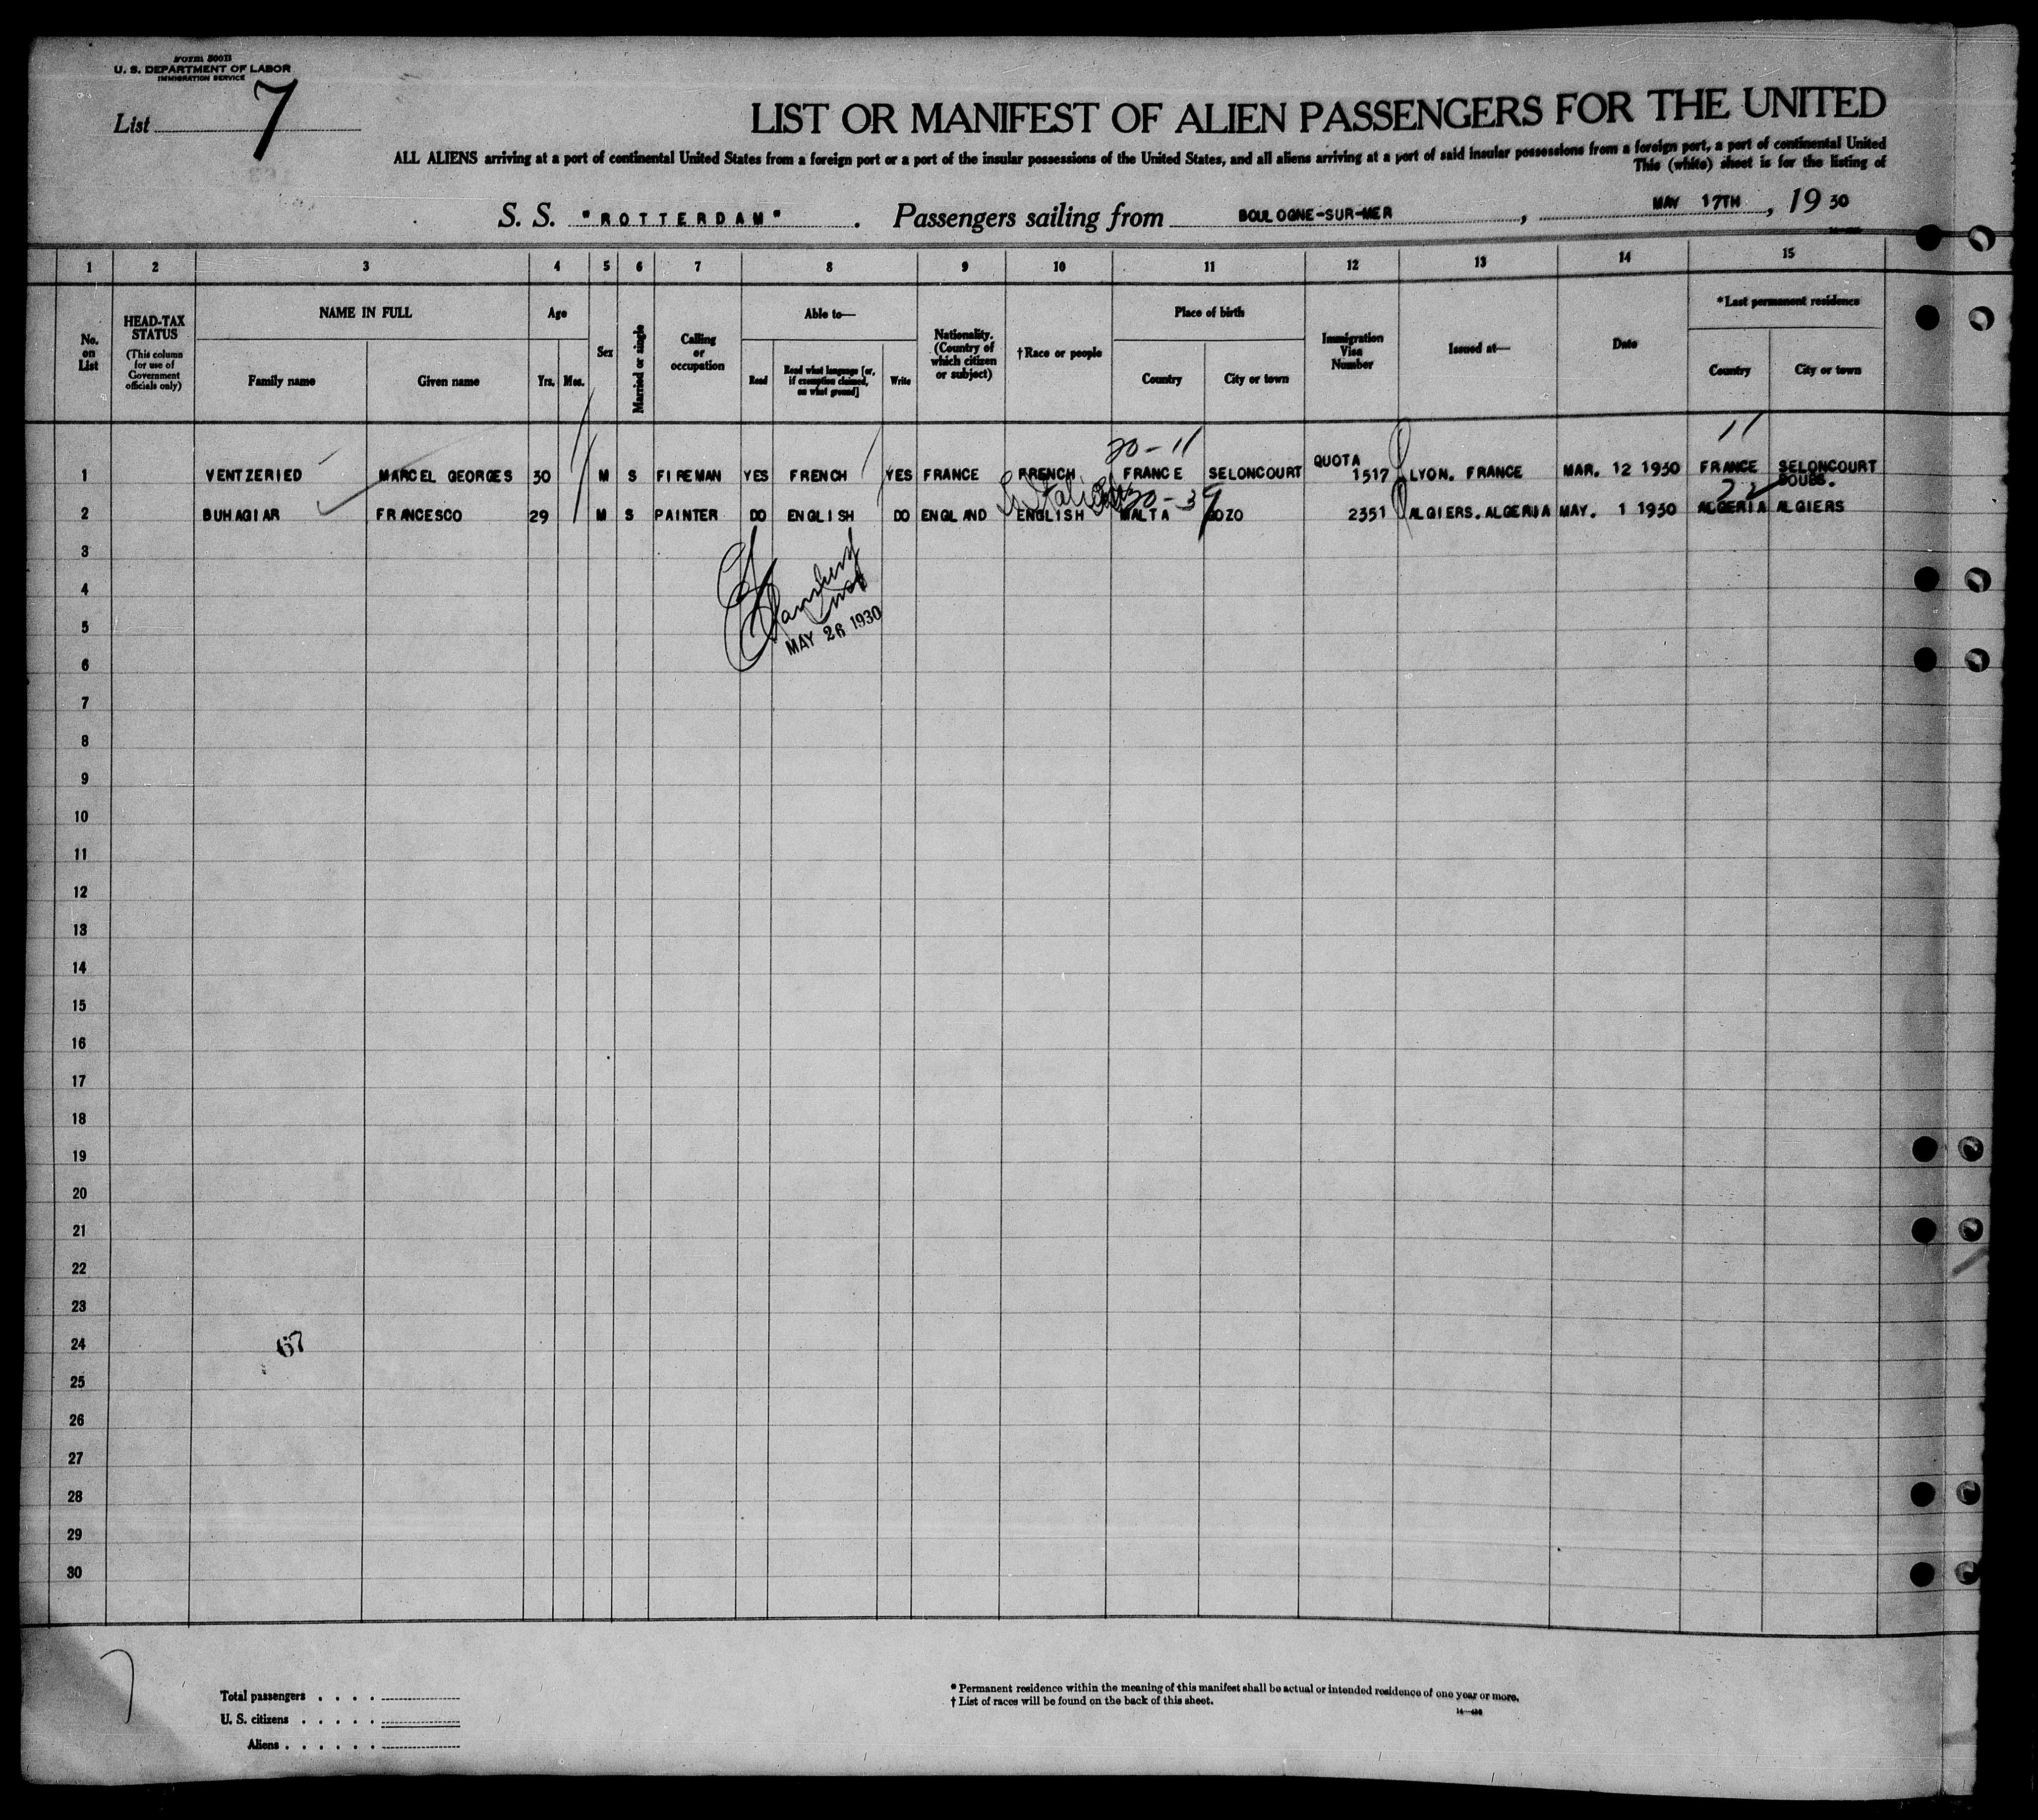 Form 500B
U. S. DEPARTMENT OF LABOR
IMMIGRATION SERVICE
List 7
LIST OR MANIFEST OF ALIEN PASSENGERS FOR THE UNITED
ALL ALIENS arriving at a port of continental United States from a foreign port or a port of the insular possessions of the United States, and all aliens arriving at a port of said insular possessions from a foreign port, a port of continental United
This (white) sheet is for the listing of
S. S. "ROTTERDAM". Passengers sailing from BOULOGNE-SUR-MER, MAY 17TH, 1930
1 2 3 4 5 6 7 8 9 10 11 12 13 14 15
No. on List
HEAD-TAX STATUS (This column for use of Government officials only)
NAME IN FULL
Family name Given name
Age
Yrs. Mos.
Sex
Married or single
Calling or occupation
Able to—
Read
Read what language [or, if exemption claimed, on what ground]
Write
Nationality. (Country of which citizen or subject)
†Race or people
Place of birth
Country City or town
Immigration Visa Number
Issued at—
Date
*Last permanent residence
Country City or town
20-11 11
QUOTA
1 VENTZERIED MARCEL GEORGES 30 M S FIREMAN YES FRENCH YES FRANCE FRENCH FRANCE SELONCOURT 1517 LYON. FRANCE MAR. 12 1930 FRANCE SELONCOURT
DOUBS.
Italian 20-39 22
2 BUHAGIAR FRANCESCO 29 M S PAINTER DO ENGLISH DO ENGLAND ENGLISH MALTA GOZO 2351 ALGIERS. ALGERIA MAY. 1 1930 ALGERIA ALGIERS
3
4
5
MAY 26 1930
6
7
8
9
10
11
12
13
14
15
16
17
18
19
20
21
22
23
24 67
25
26
27
28
29
30
7
Total passengers . . . .
U. S. citizens . . . . .
Aliens . . . . . .
* Permanent residence within the meaning of this manifest shall be actual or intended residence of one year or more.
† List of races will be found on the back of this sheet.